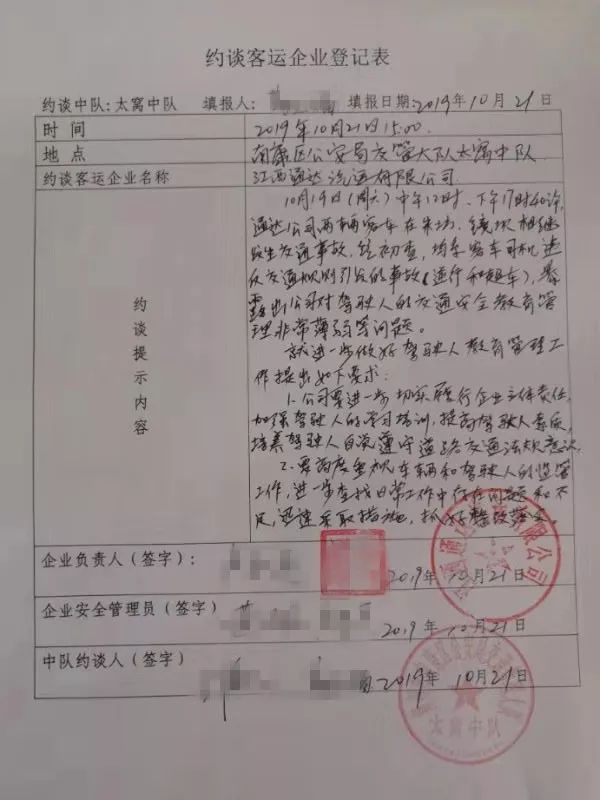 约谈客运企业登记表
约谈中队:太窝中队 填报人: 填报日期:2019年10月21日
时间 2019年10月21日15:00
地点 南康区公安局交管大队太窝中队
约谈客运企业名称 江西通达汽运有限公司
约谈提示内容
10月19日(周六)中午12时、下午17时40许,
通达公司两辆客车在朱坊、 相继
发生交通事故,经初查,均系客车司机违
反交通规则引发的事故(逆行和超车),暴
露出公司对驾驶人的交通安全教育管
理非常薄弱等问题。
就进一步做好驾驶人教育管理工
作提出如下要求:
1.公司要进一步切实履行企业主体责任,
加强驾驶人的学习培训,提高驾驶人素质,
培养驾驶人自觉遵守道路交通法规意识。
2.要高度重视车辆和驾驶人的监管
工作,进一步查找日常工作中存在问题和不
足,迅速采取措施,抓好整改落实。
企业负责人(签字): 2019年10月21日
企业安全管理员(签字) 2019年10月21日
中队约谈人(签字) 2019年10月21日
限公司
太窝中队